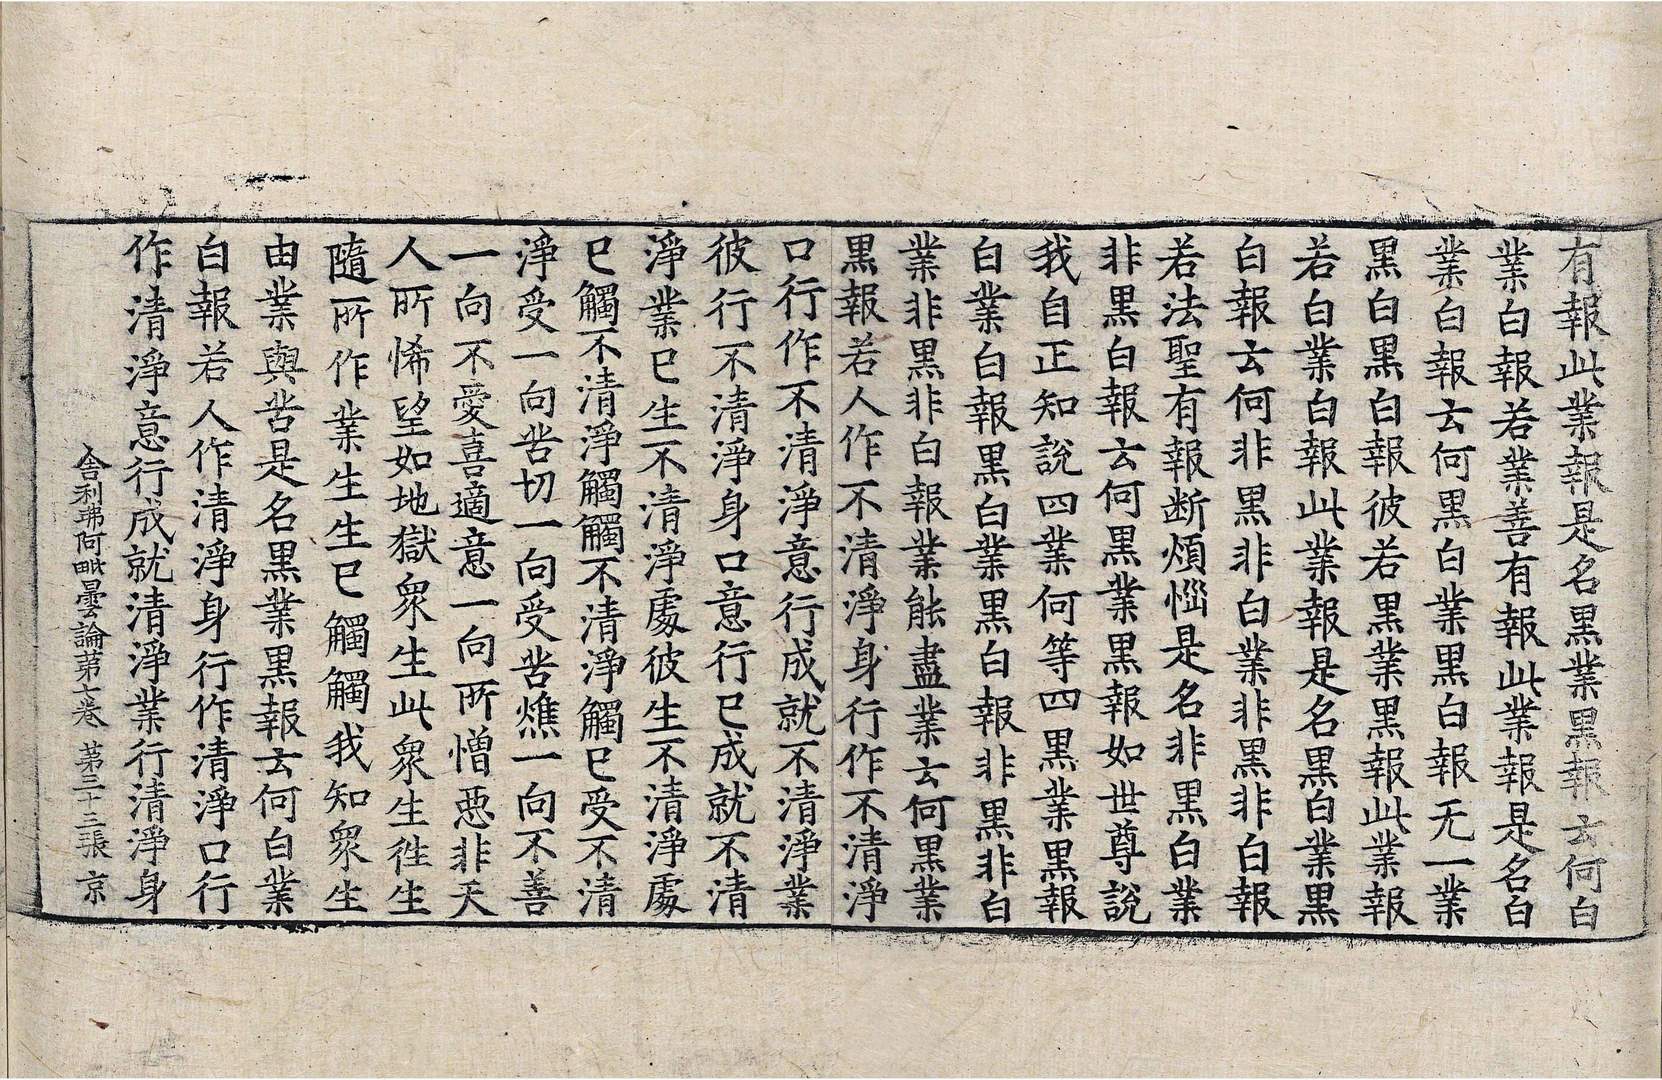 有報此業報是名黑業黑報云何白
業白報若業善有報此業報是名白
業白報云何黑白業黑白報无一業
黑白黑白報彼若黑業黑報此業報
若白業白報此業報是名黑白業黑
白報云何非黑非白業非黑非白報
若法聖有報断煩惱是名非黑白業
非黑白報云何黑業黑報如世尊說
我自正知說四業何等四黑業黑報
白業白報黑白業黑白報非黑非白
業非黑非白報業能盡業云何黑業
黑報若人作不清淨身行作不清淨
口行作不清淨意行成就不清淨業
彼行不清淨身口意行已成就不清
淨業已生不清淨處彼生不清淨處
已觸不清淨觸觸不清淨觸已受不清
淨受一向苦切一向受苦燋一向不善
一向不愛喜適意一向所憎惡非天
人所悕望如地獄衆生此衆生徃生
隨所作業生生已觸觸我知衆生
由業與苦是名黑業黑報云何白業
白報若人作清淨身行作清淨口行
作清淨意行成就清淨業行清淨身
舍利弗阿毗曇論第七卷 第三十三張 京